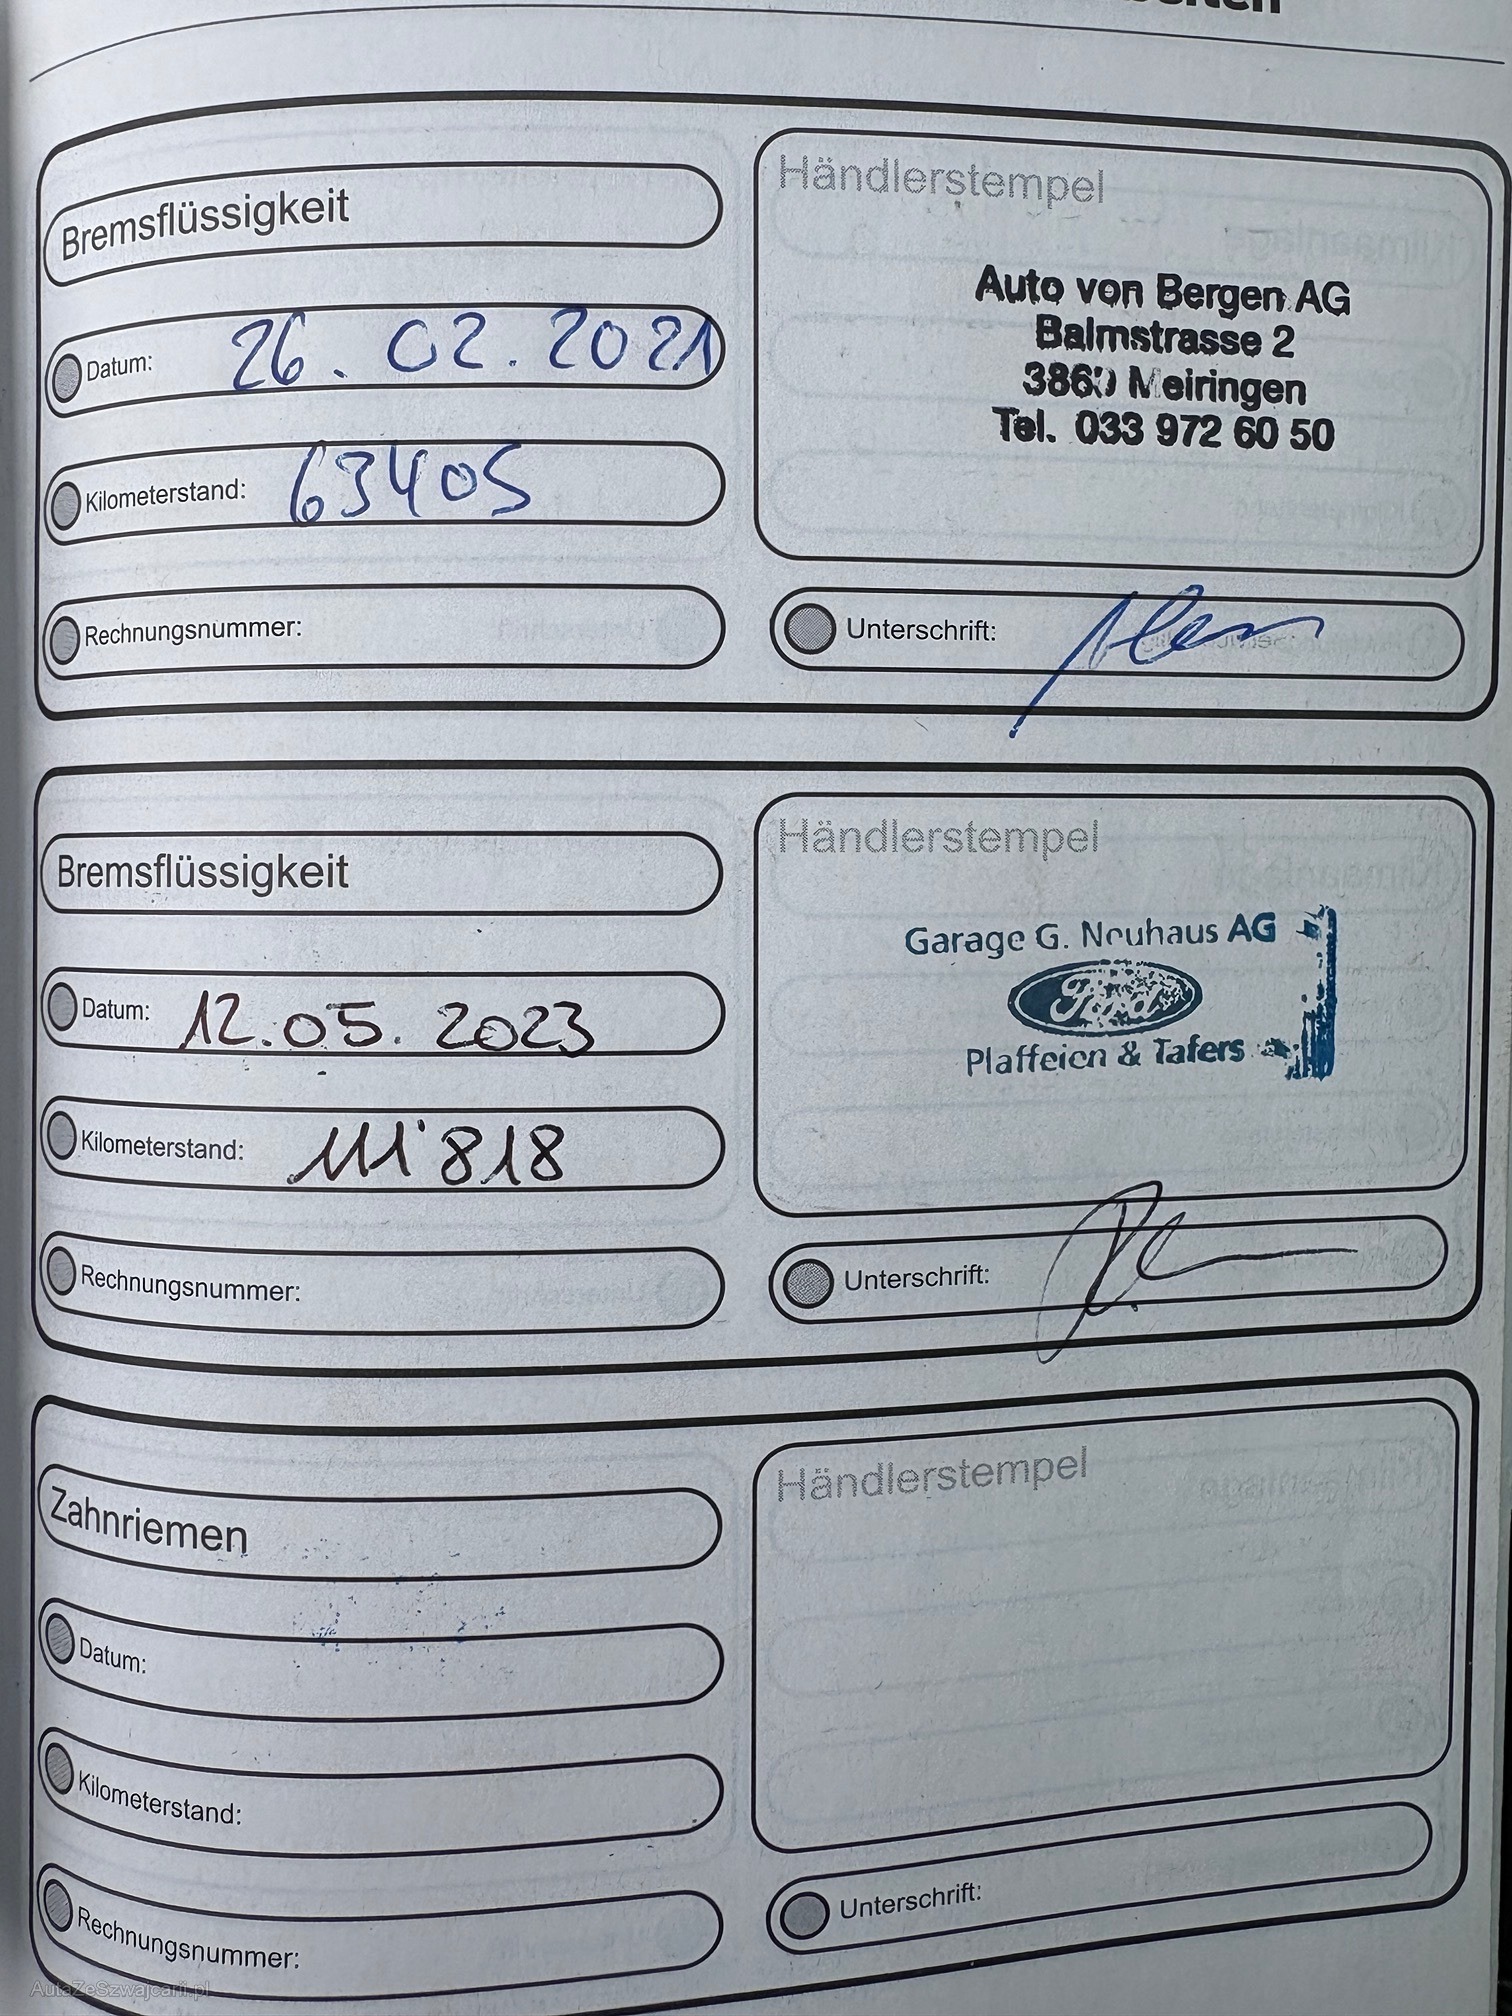 Bremsflüssigkeit
Datum: 26.02.2021
Kilometerstand: 63405
Rechnungsnummer:
Händlerstempel
Auto von Bergen AG
Balmstrasse 2
3860 Meiringen
Tel. 033 972 60 50
Unterschrift:
Bremsflüssigkeit
Datum: 12.05.2023
Kilometerstand: 111'818
Rechnungsnummer:
Händlerstempel
Garage G. Neuhaus AG
Ford
Plaffeien & Tafers
Unterschrift:
Zahnriemen
Datum:
Kilometerstand:
Rechnungsnummer:
Händlerstempel
Unterschrift:
AutaZeSzwajcarii.pl